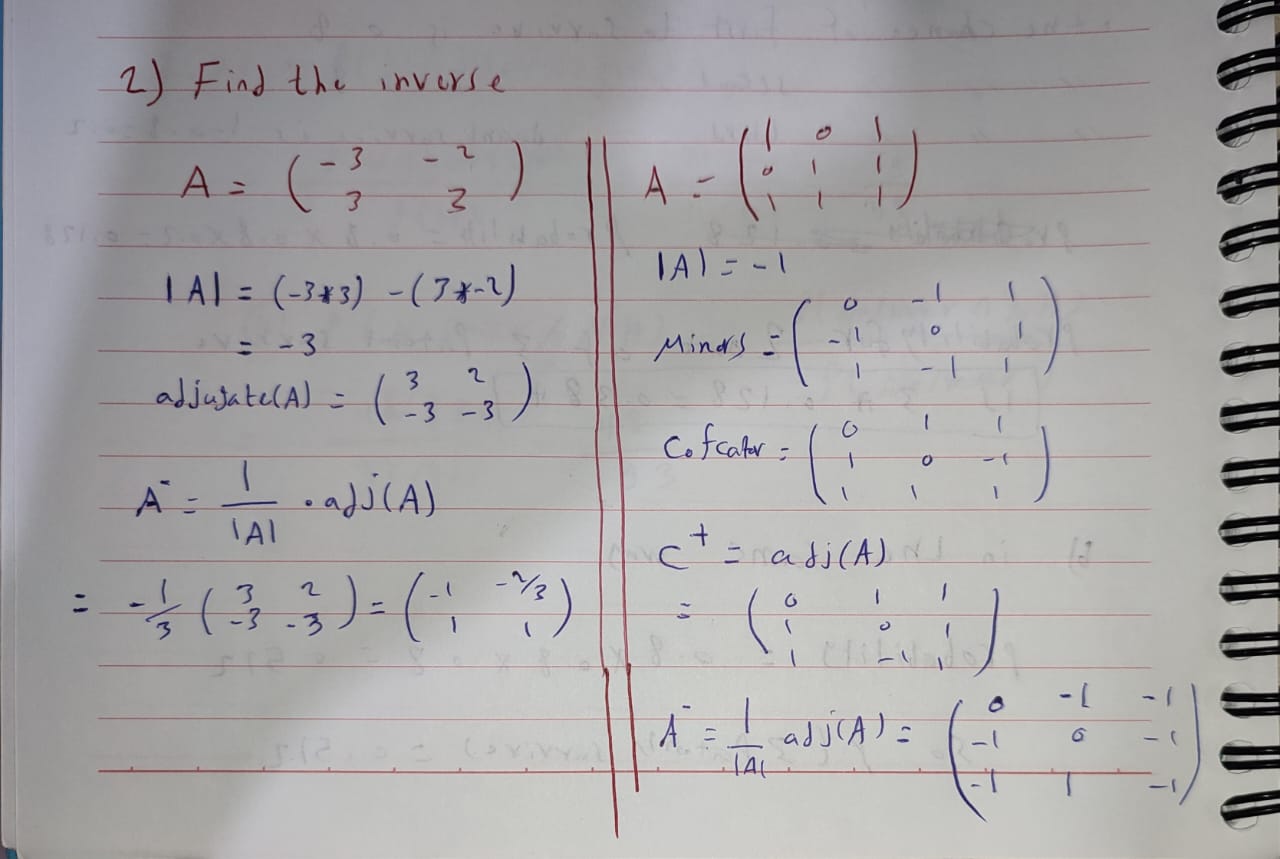 2) Find the inverse
A = ( -3 -2
3 3 )
|A| = (-3*3) - (3*-2)
= -3
adjugate(A) = ( 3 2
-3 -3 )
A⁻ = 1/|A| . adj(A)
= -1/3 ( 3 2
-3 -3 ) = ( -1 -2/3
1 1 )
A = ( 1 0 1
0 1 1
1 1 1 )
|A| = -1
Minors = ( 0 -1 1
-1 0 1
1 -1 1 )
Cofcator = ( 0 1 1
1 0 -1
1 1 1 )
C⁺ = adj(A)
= ( 0 1 1
1 0 1
1 -1 1 )
A⁻ = 1/|A| adj(A) = ( 0 -1 -1
-1 0 -1
-1 1 -1 )